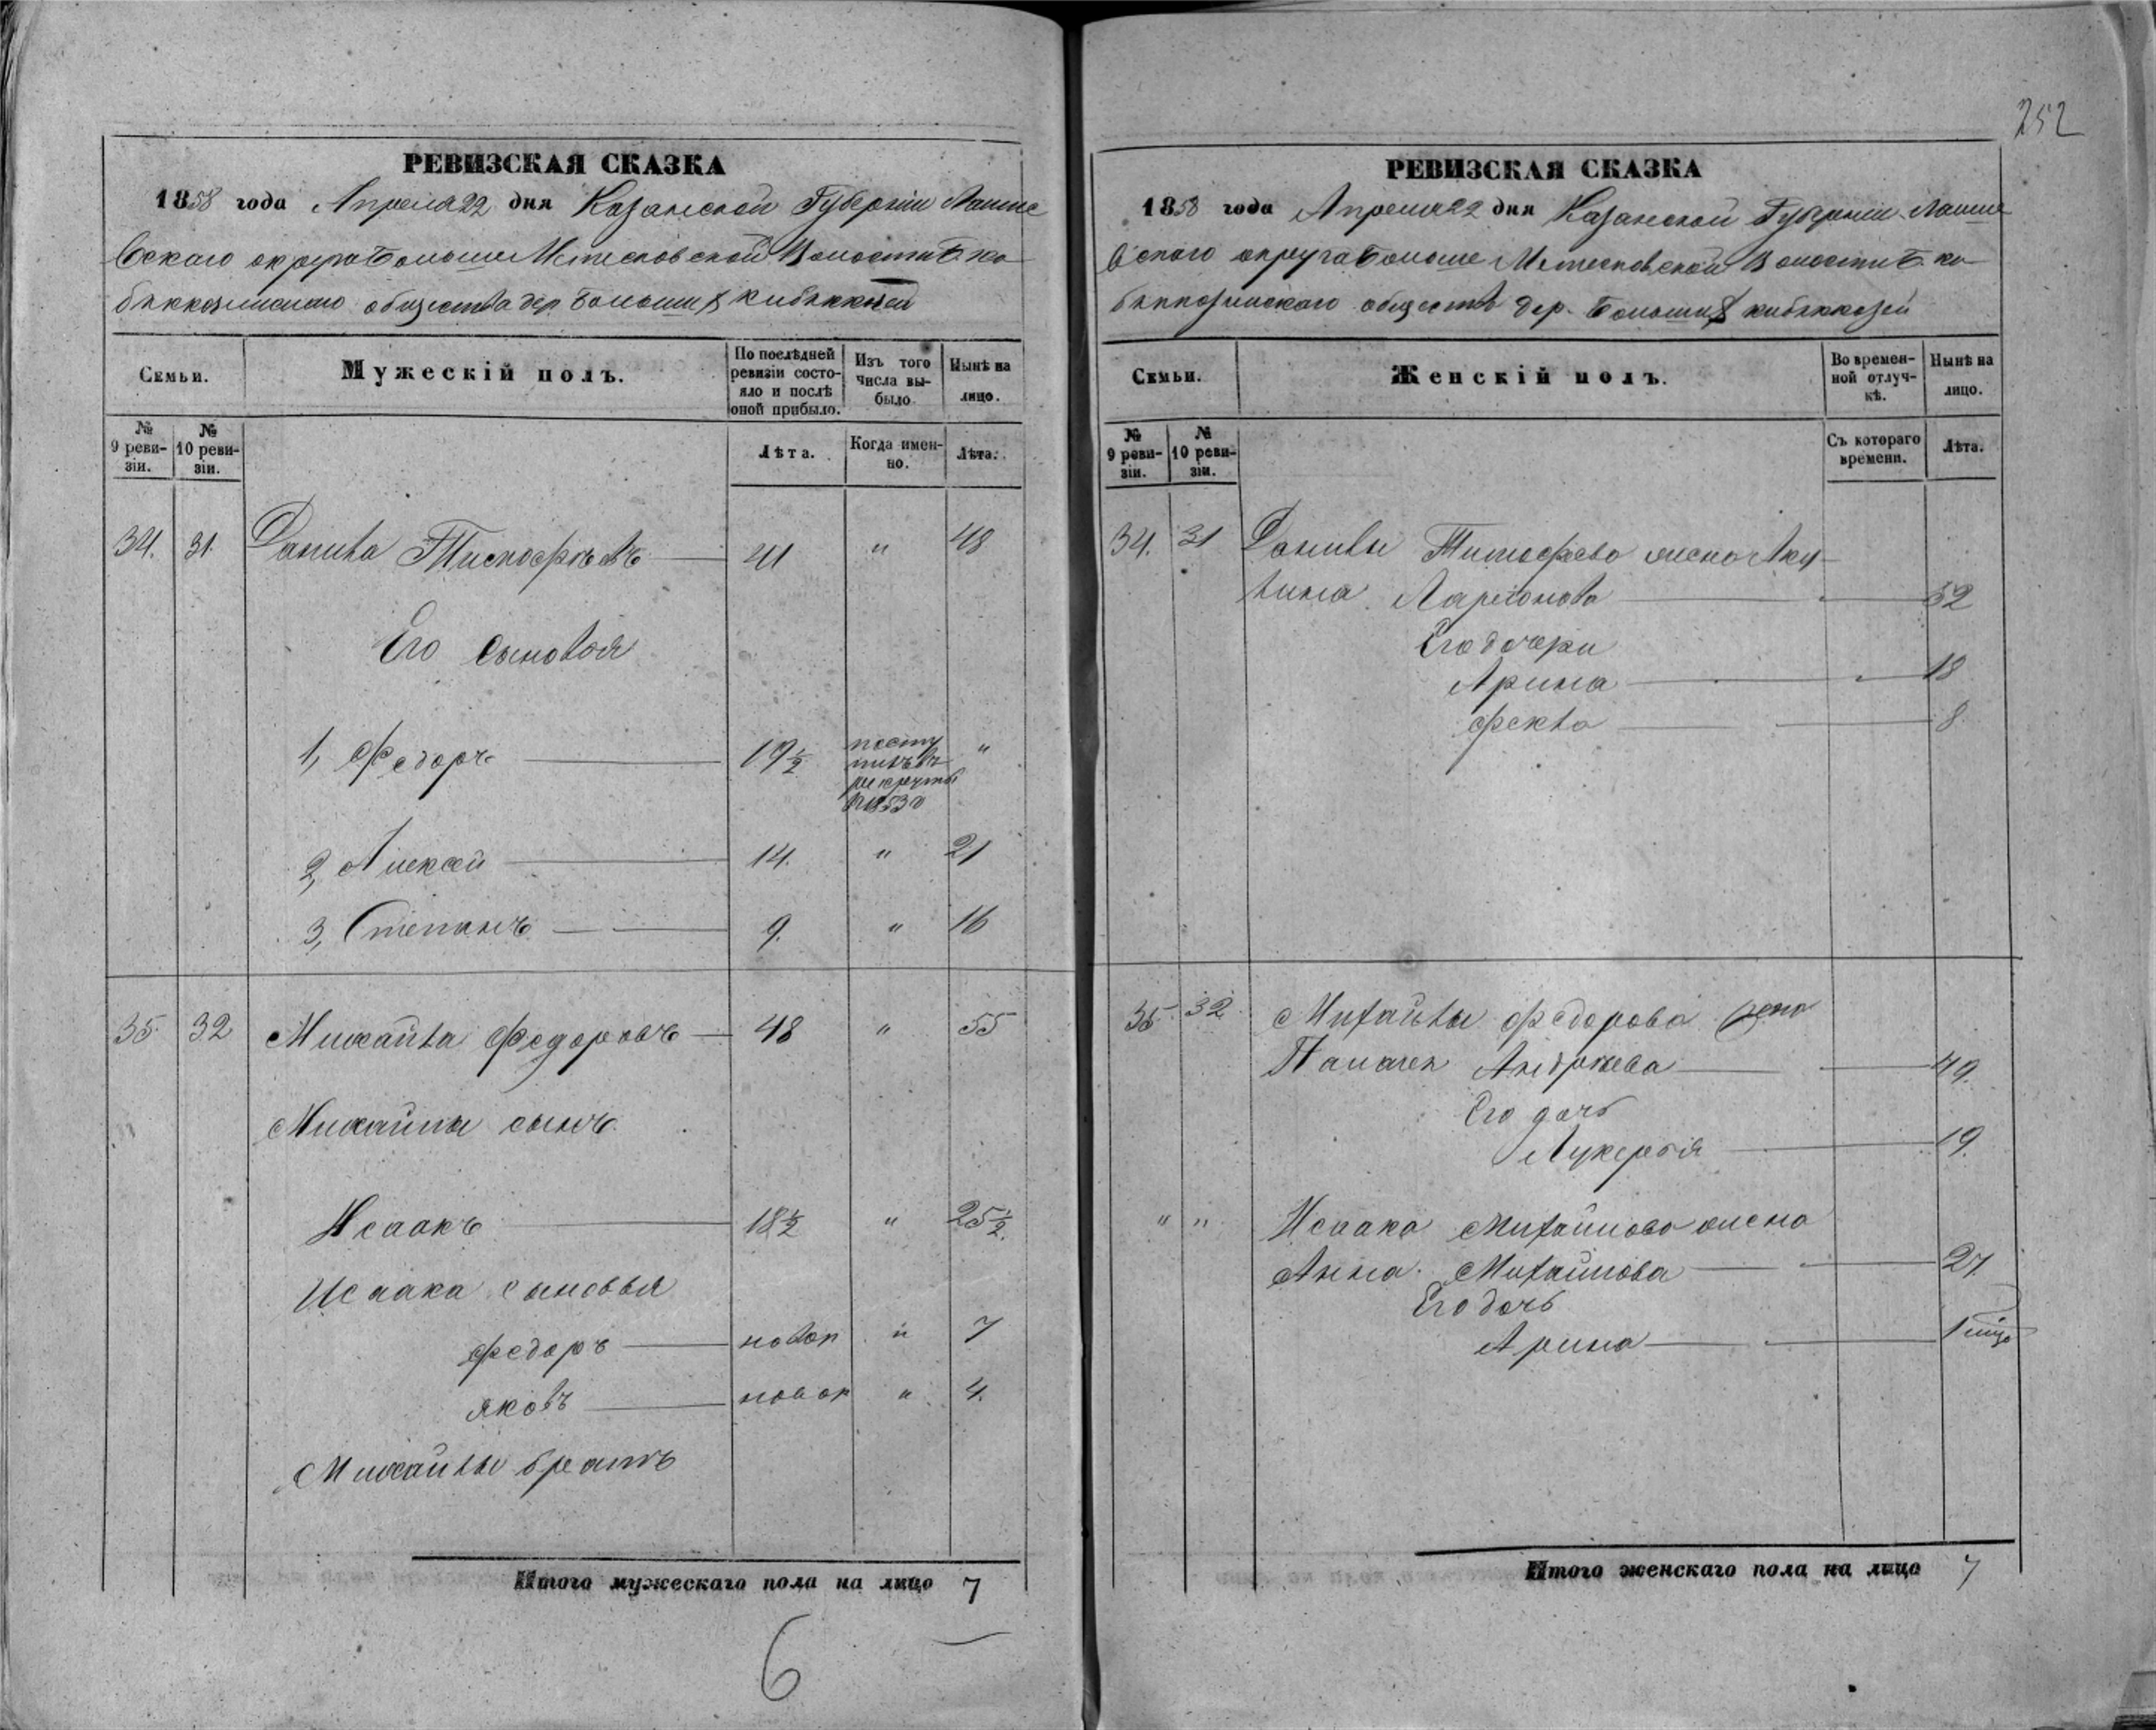 252
РЕВИЗСКАЯ СКАЗКА
1858 года Апреля 22 дня Казанской Губерніи Лаише
вскаго округа Больше Метесковской Волости Б. ки
бяккозинскаго общества дер. Большихъ кибяккозей
Семьи.
Мужескій полъ.
По послѣдней ревизіи состояло и послѣ оной прибыло.
Изъ того числа выбыло
Нынѣ на лицо.
№ 9 ревизіи.
№ 10 ревизіи.
Лѣта.
Когда именно.
Лѣта.
34. 31. Данила Тимофѣевъ 41 " 48
Его сыновья
1, Федоръ 19½ поступилъ въ рекруты в 1853 г "
2, Алексей 14. " 21
3, Степанъ 9. " 16
35 32 Михайла Федоровъ 48 " 55
Михайлы сынъ
Исаакъ 18½ " 25½.
Исаака сыновья
Федоръ новор " 7
Яковъ новор " 4.
Михайлы братъ
Итого мужескаго пола на лицо 7
6
РЕВИЗСКАЯ СКАЗКА
1858 года Апреля 22 дня Казанской Губерніи Лаише
вскаго округа Больше Метесковской Волости Б. ки
бяккозинскаго общества дер. Большихъ кибяккозей
Семьи.
Женскій полъ.
Во временной отлучкѣ.
Нынѣ на лицо.
№ 9 ревизіи.
№ 10 ревизіи.
Съ котораго времени.
Лѣта.
34. 31 Данилы Тимофеева жена Аку
лина Ларионова 52
Его дочери
Арина 18
Фекла 8
35. 32 Михайлы Федорова жена
Андреева 49.
Его дочь
Лукерья 19.
" " Исаака Михайлова жена
Анна Михайлова 27
Его дочь
Арина
Итого женскаго пола на лицо 7